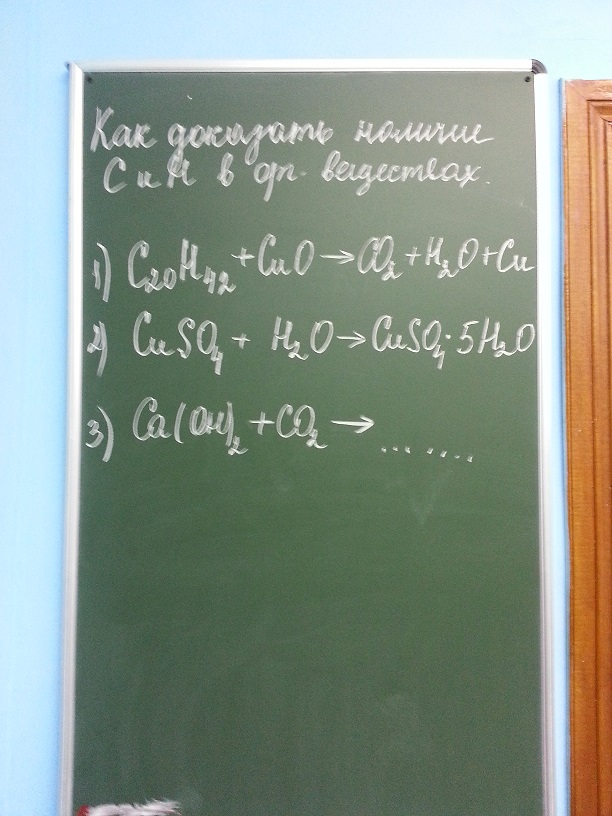 Как доказать наличие
С и Н в орг. веществах.
1) C₂₀H₄₂ + CuO → CO₂ + H₂O + Cu
2) CuSO₄ + H₂O → CuSO₄·5H₂O
3) Ca(OH)₂ + CO₂ → ... ....